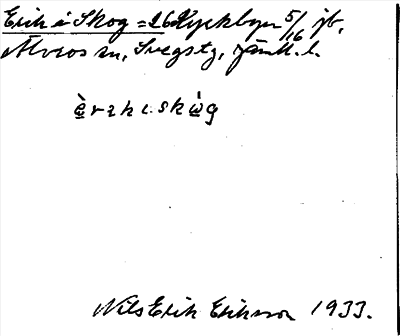 Erik i Skog = 26 Kyckbyn 5/16 jb,
Älvros sn, Svegs tg, Jämtl. l.
èrık ı. skὼg
Nils Erik Eriksson 1933.